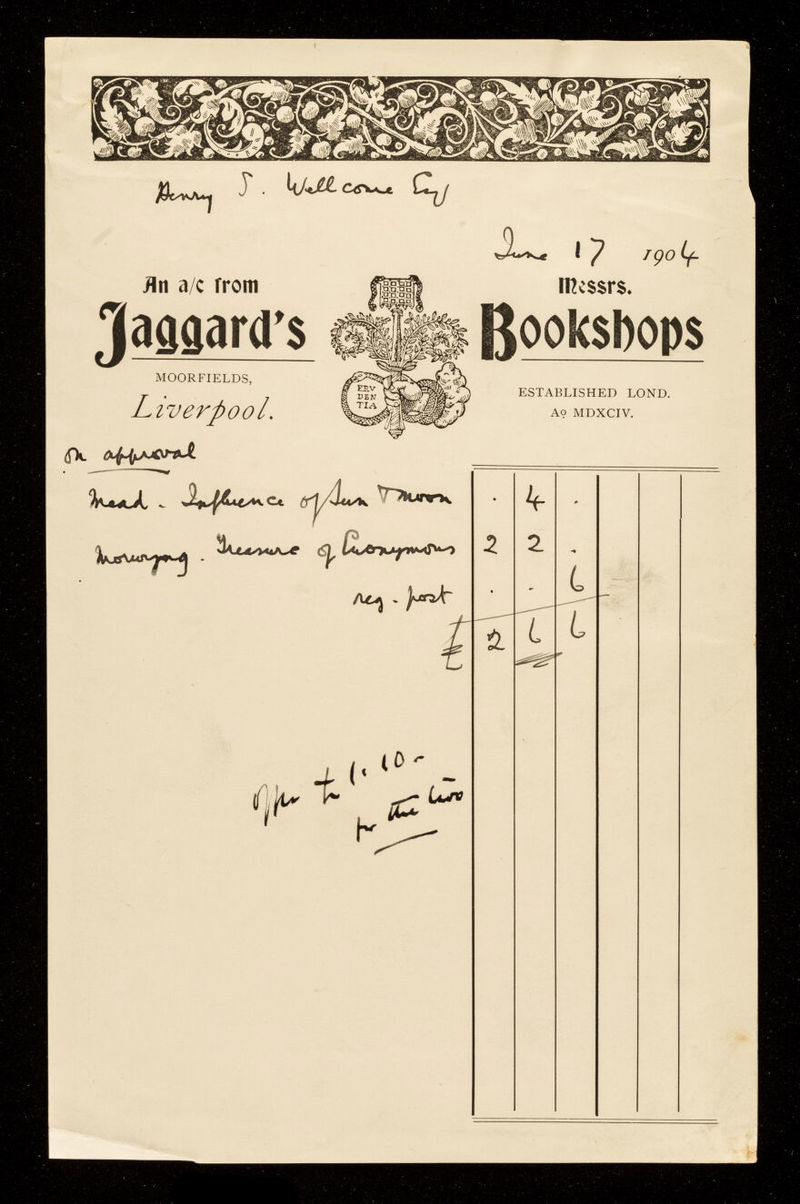 Henry S. Wellcome Esq
June 17 1904
An a/c from Messrs.
Jaggard's Bookshops
PRV
DEN
TIA
MOORFIELDS,
Liverpool.
ESTABLISHED LOND.
Aº MDXCIV.
On approval
Mead - Influence of Sun & Moon . 4 .
Morwyng . Treasure of Euonymous 2 2 .
reg - post . - 6
£ 2 6 6
Offer £1. 10 -
for the two